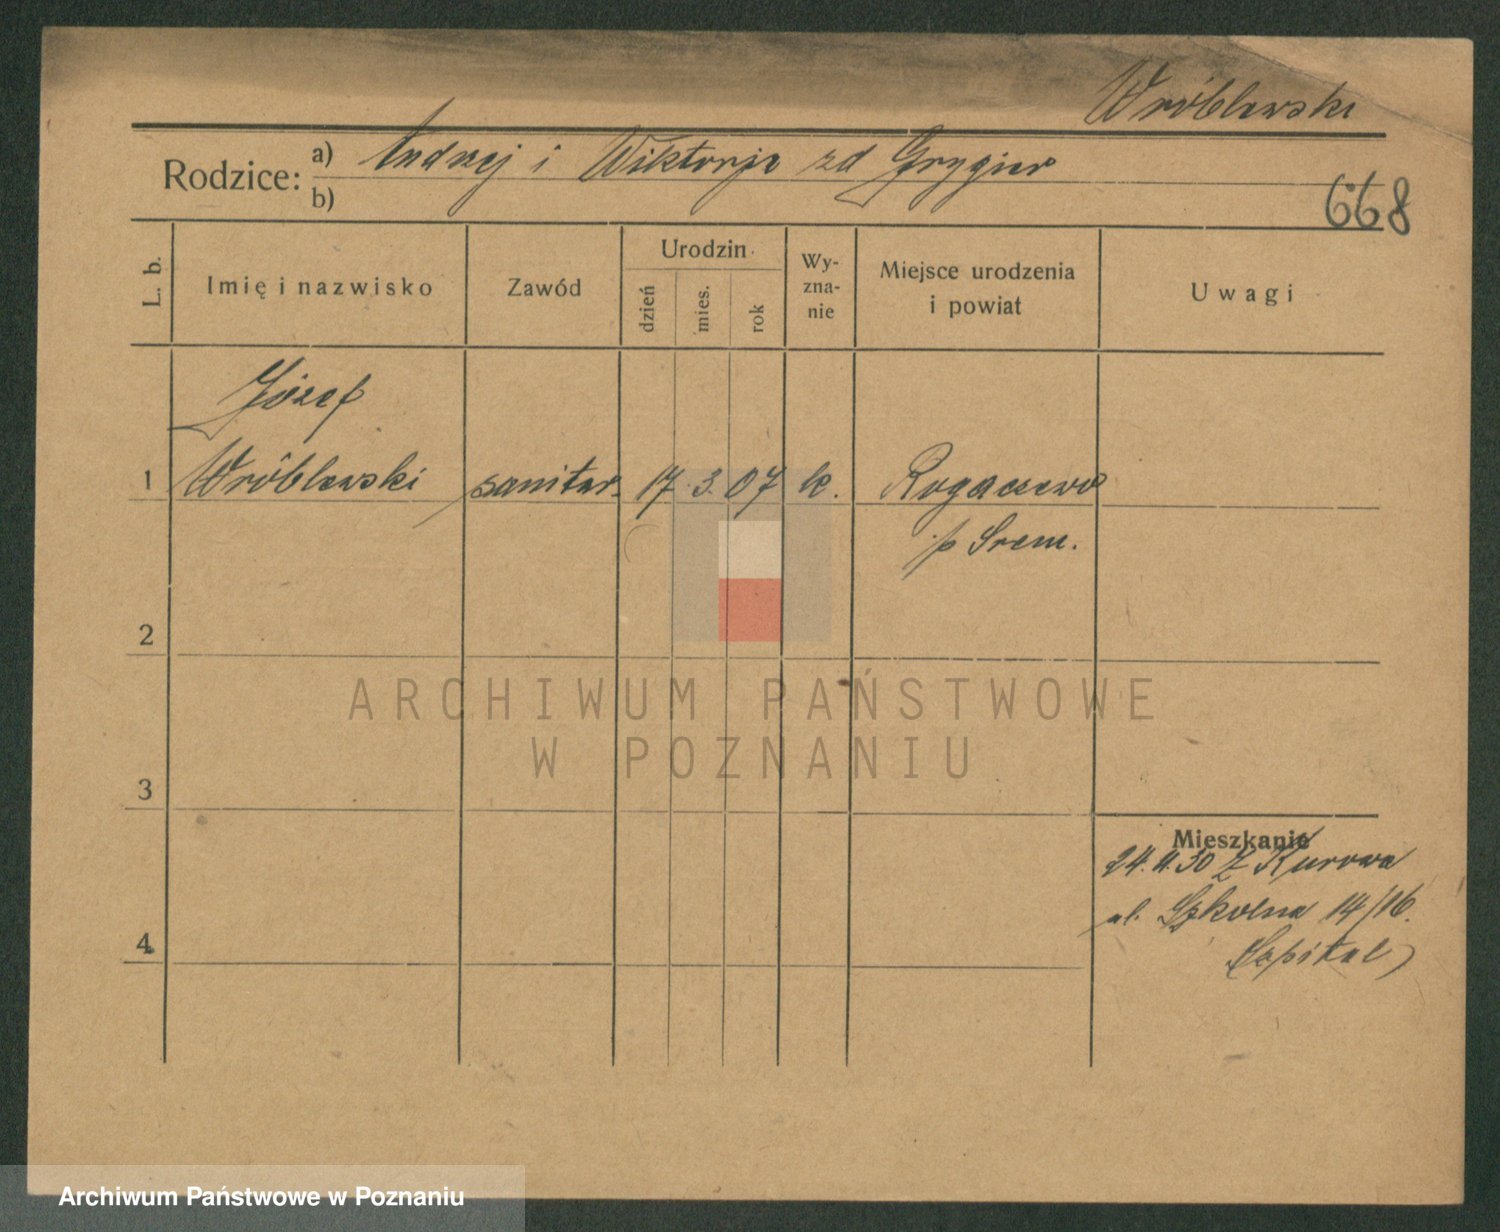 Wróblewski
Rodzice: a) Andrzej i Wiktorja zd Grygier
b)
668
L. b. Imię i nazwisko Zawód Urodzin dzień mies. rok Wy-zna-nie Miejsce urodzenia i powiat Uwagi
Józef
1 Wróblewski sanitar. 17. 3. 07 k. Rogaczewo
p Srem.
2
ARCHIWUM PAŃSTWOWE
W POZNANIU
3
Mieszkanie
24. 11. 30 Z Kurowa
ul. Szkolna 14/16.
4
(Szpital)
Archiwum Państwowe w Poznaniu